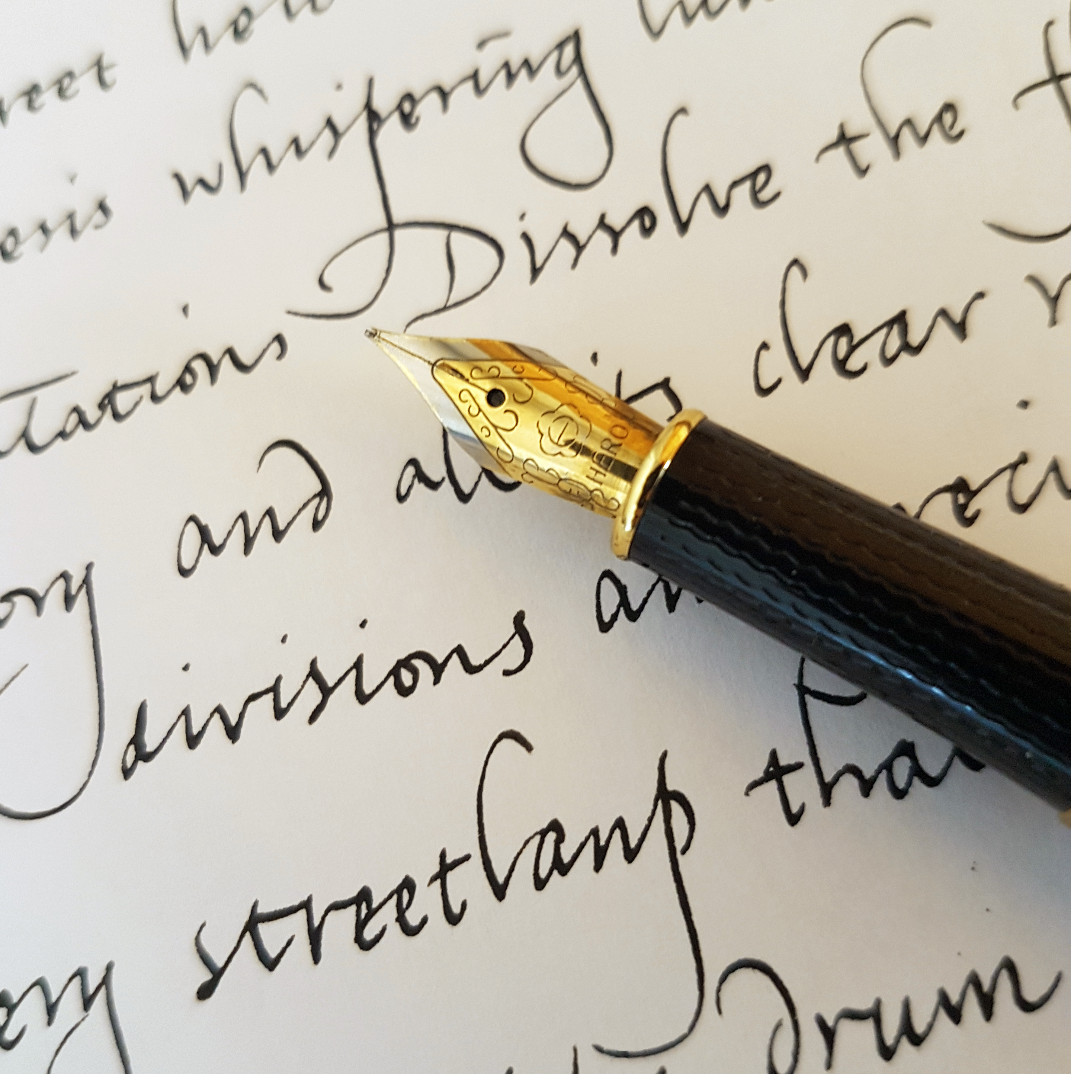 reet
esis whispering lun
tations Dissolve the f
ory and all its clear r
divisions an preci
ery streetlamp that
drum
HERO